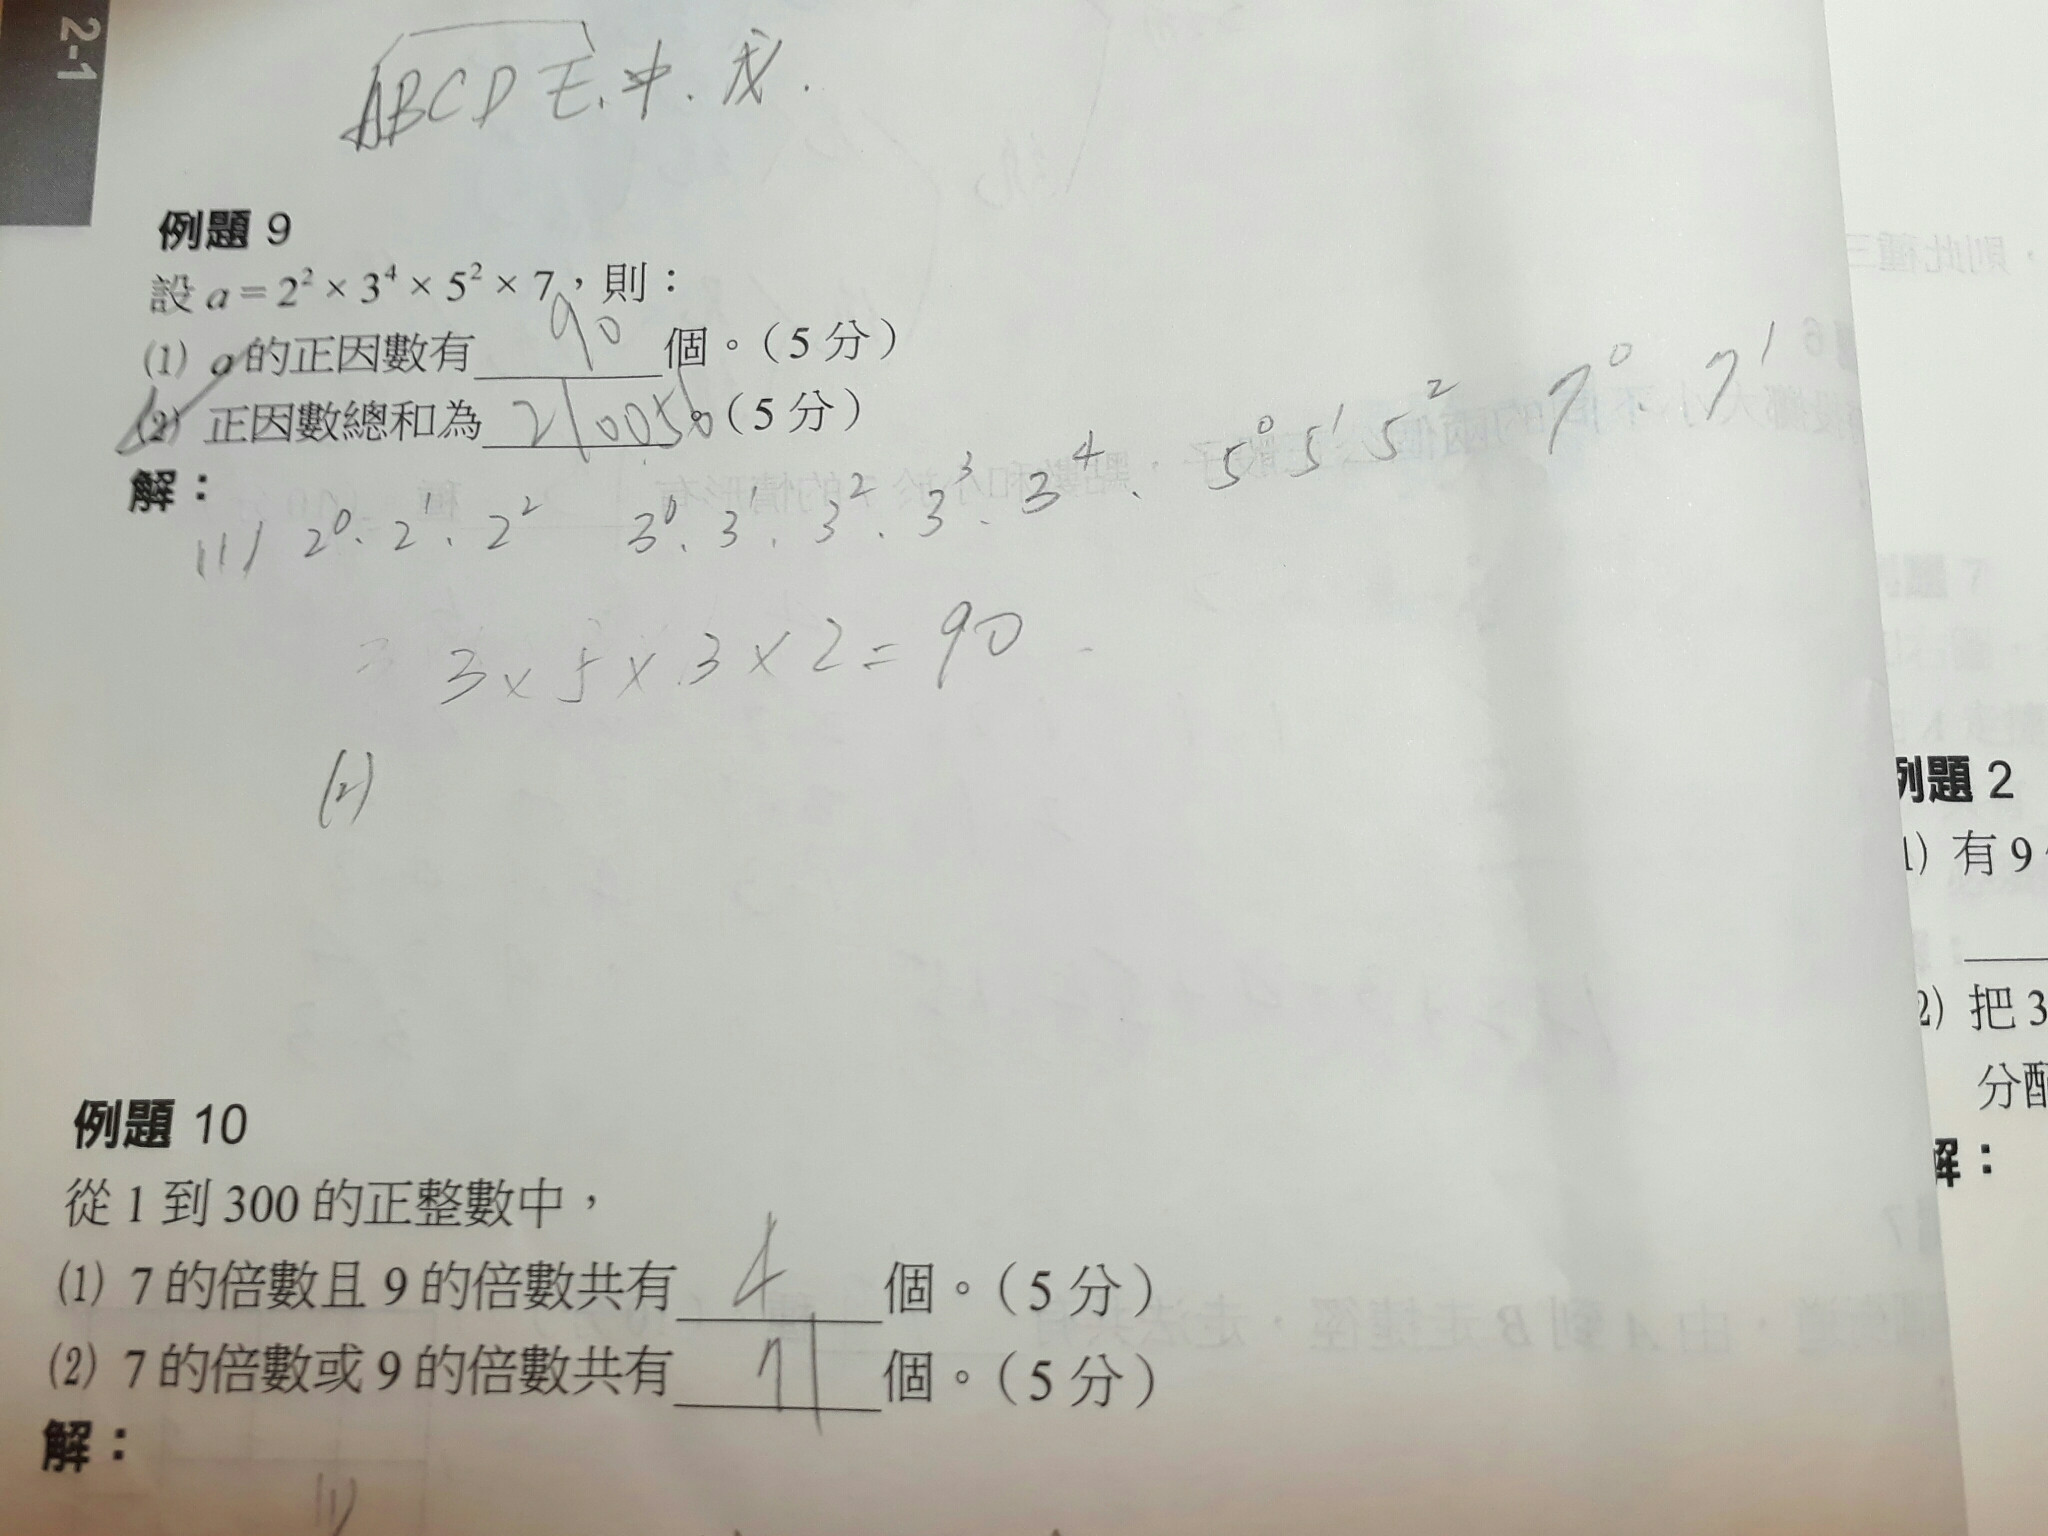 2-1
ABCD 王. 中. 戊.
例題 9
設 a = 2² × 3⁴ × 5² × 7,則:
(1) a的正因數有 90 個。(5 分)
(2) 正因數總和為 210056。(5 分)
解:
(1) 2⁰. 2¹. 2² 3⁰. 3¹. 3². 3³. 3⁴. 5⁰ 5¹ 5² 7⁰. 7¹
3 × 5 × 3 × 2 = 90
(2)
例題 10
從 1 到 300 的正整數中,
(1) 7 的倍數且 9 的倍數共有 4 個。(5 分)
(2) 7 的倍數或 9 的倍數共有 71 個。(5 分)
解:
(1)
例題 2
1) 有 9
2) 把 3
分配
解: